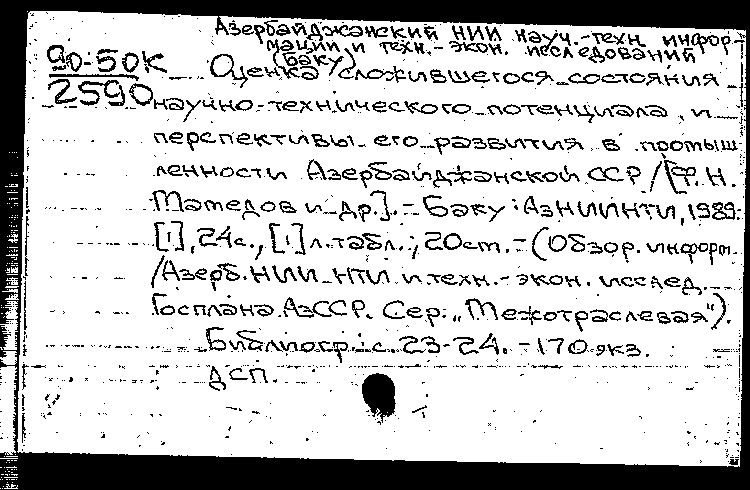 Азербайджанский НИИ науч.-техн. инфор-
мации и техн.-экон. исследований
(Баку)
90-50К
2590
Оценка сложившегося состояния
научно-технического потенциала и
перспективы его развития в промыш
ленности Азербайджанской ССР / [Ф. Н.
Мамедов и др.]. - Баку : АзНИИНТИ, 1989.
[1], 24 с., [1] л. табл. ; 20 см. - (Обзор. информ.
/Азерб. НИИ НТИ и техн.- экон. исслед.
Госплана АзССР. Сер. „Межотраслевая").
Библиогр.: с. 23-24. - 170 экз.
ДСП.